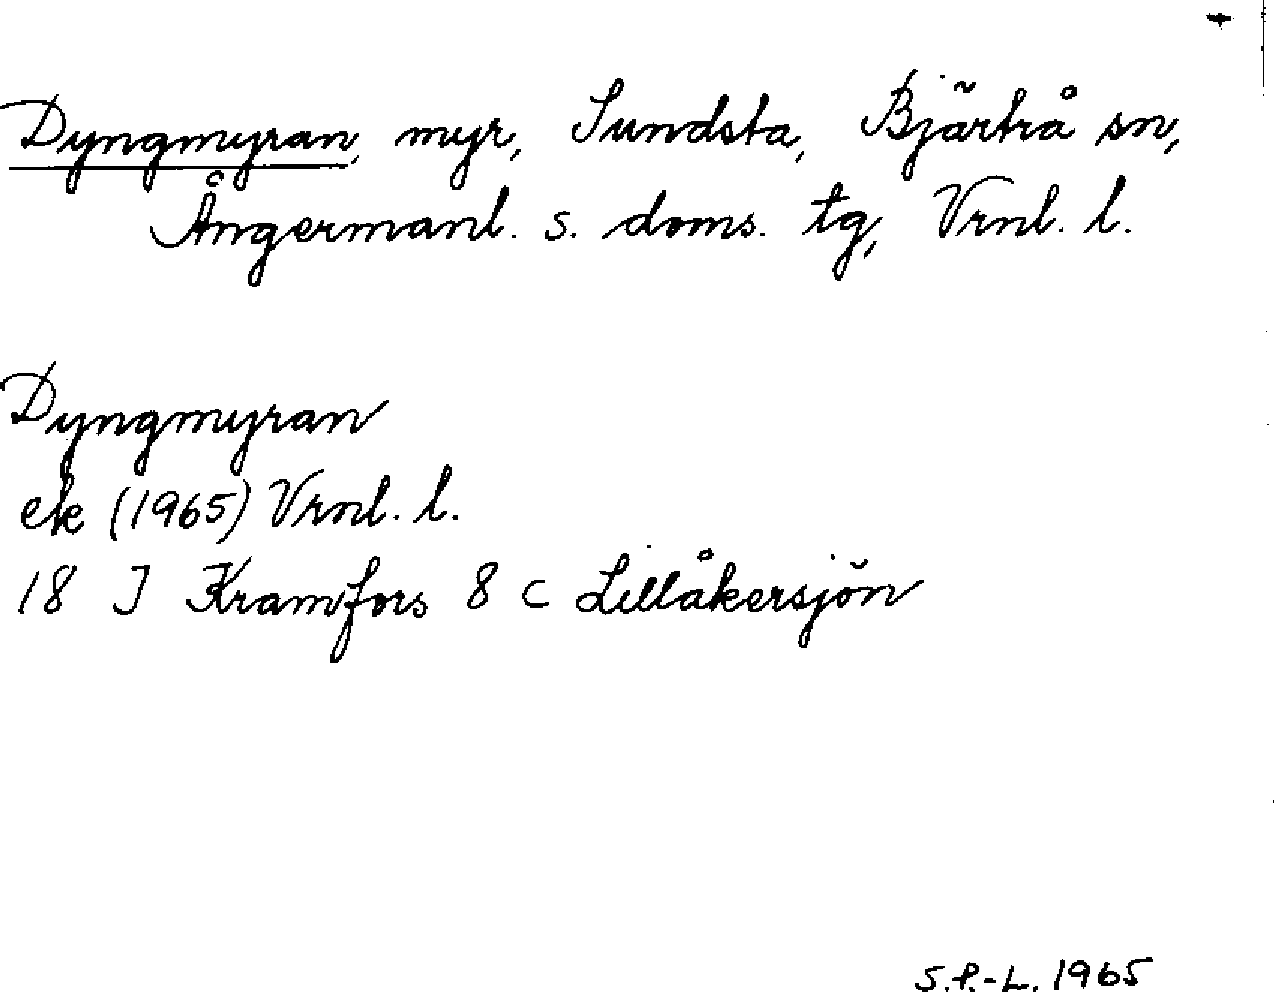 Dyngmyran, myr, Sundsta, Bjärtrå sn,
Ångermanl. s. doms. tg, Vrnl. l.
Dyngmyran
ek (1965) Vrnl. l.
18 J Kramfors 8 c Lillåkersjön
S.P.-L. 1965